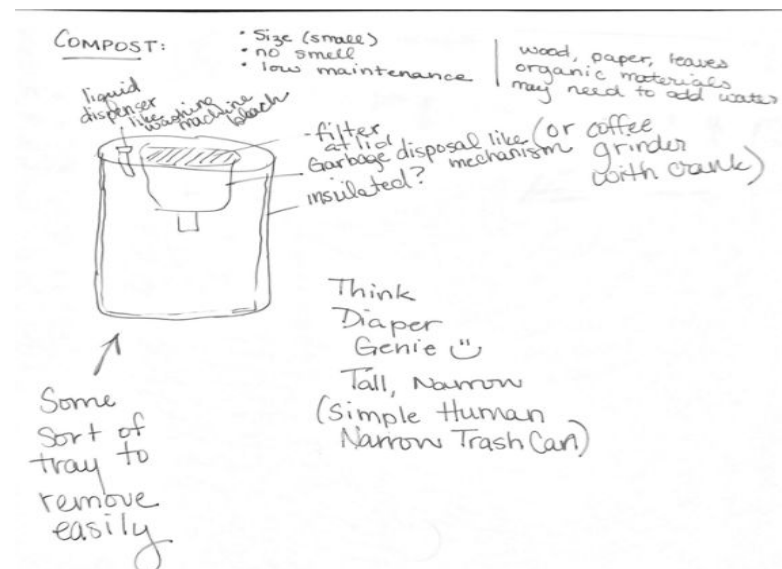 COMPOST:
• Size (small)
• no smell
• low maintenance
wood, paper, leaves
organic materials
may need to add water
liquid
dispenser
like
washing
machine
bleach
- filter
at lid
Garbage disposal like
mechanism
(or coffee
grinder
with crank)
insulated?
Think
Diaper
Genie
Tall, Narrow
(Simple Human
Narrow Trash Can)
Some
sort of
tray to
remove
easily